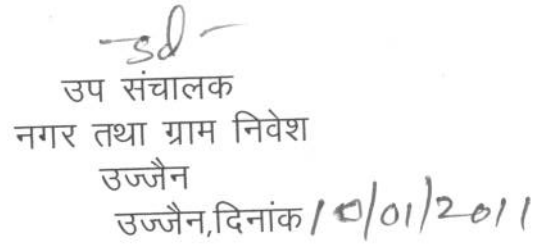 -sd-
उप संचालक
नगर तथा ग्राम निवेश
उज्जैन
उज्जैन,दिनांक 10/01/2011